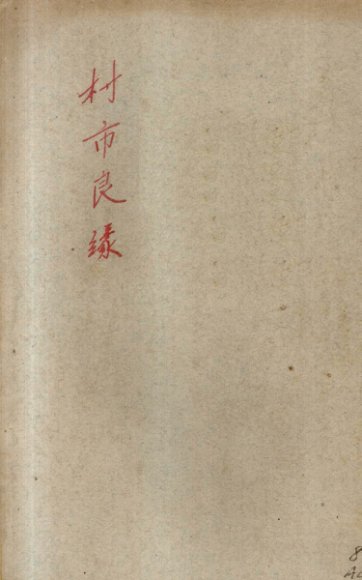 村市良缘
8